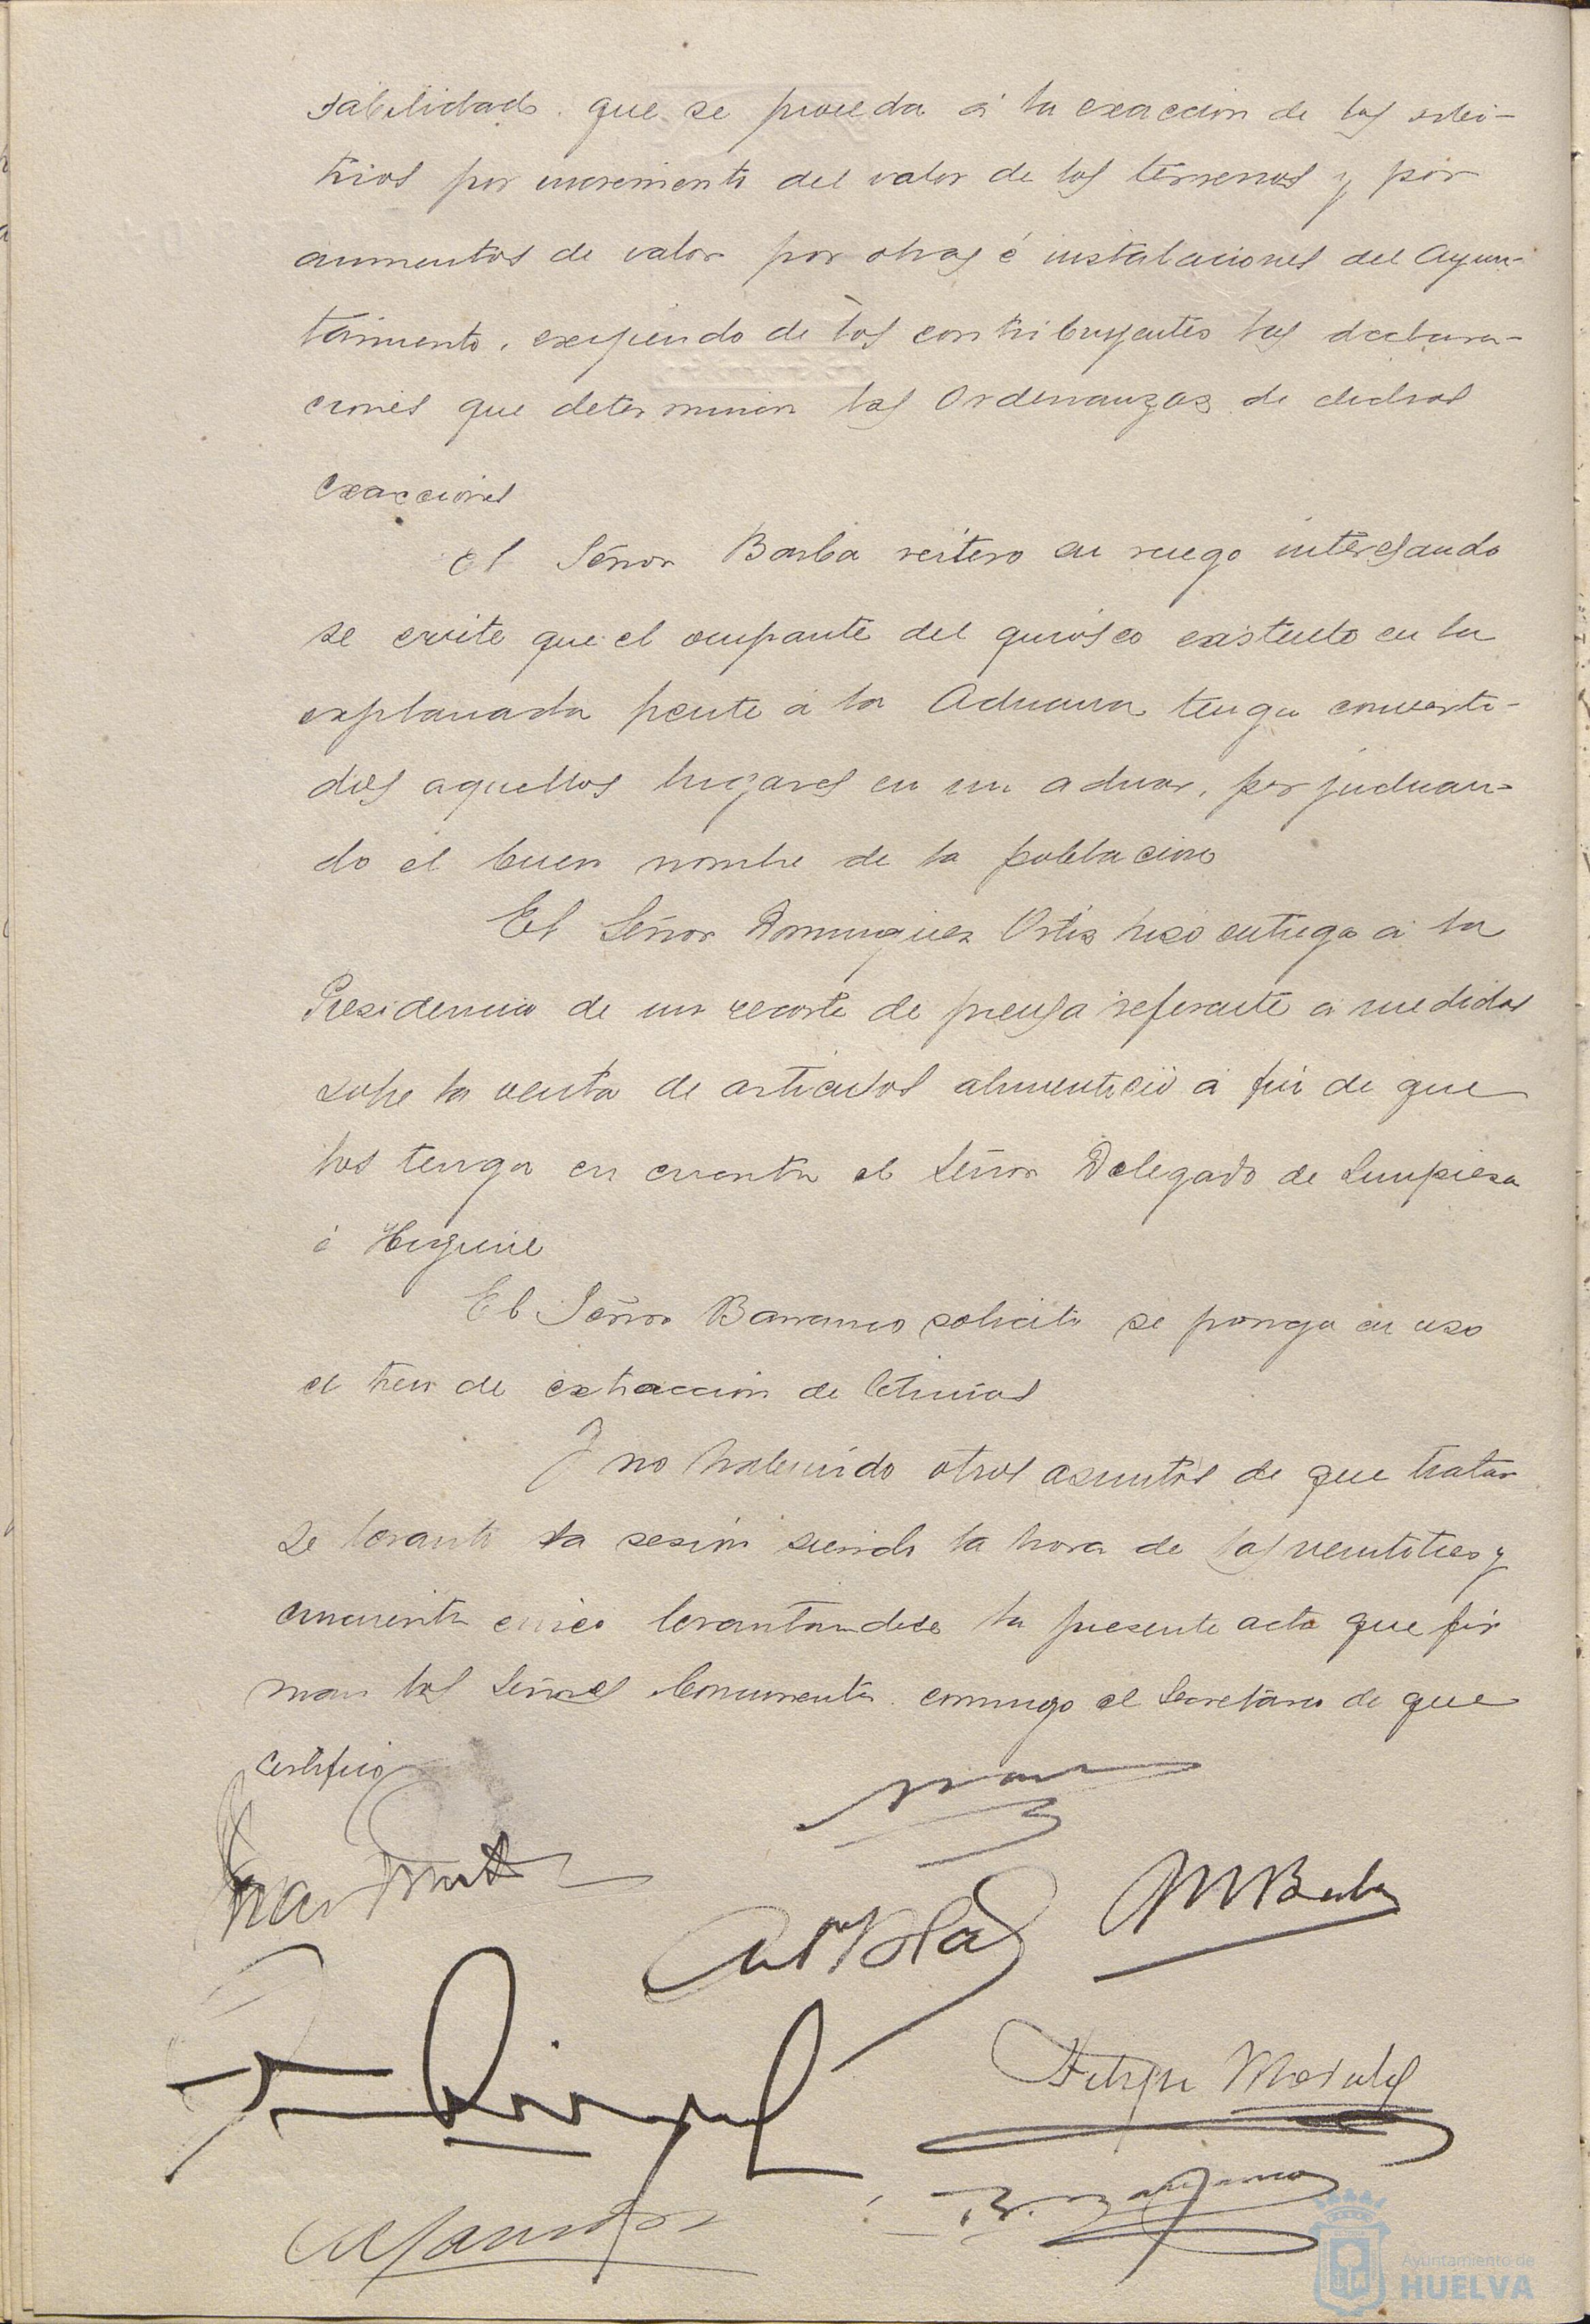 sabilidad. que se proceda á la exacción de los arbi-
trios por incremento del valor de los terrenos y por
aumentos de valor por obras é instalaciones del Ayun-
tamiento, exigiendo de los contribuyentes las declara-
ciones que determinan las Ordenanzas de dichas
exacciones
El Señor Barba reitero su ruego interesando
se evite que el ocupante del quiosco existente en la
explanada frente á la Aduana tenga converti-
dos aquellos lugares en un aduar, perjudican-
do el buen nombre de la población
El Señor Dominguez Ortiz hizo entrega á la
Presidencia de un recorte de prensa referente á medidas
sobre la venta de articulos alimenticio á fin de que
los tenga en cuenta el Señor Delegado de Limpieza
é Higiene
El Señor Barranco solicito se ponga en uso
el tren de extracción de letrinas
Y no habiendo otros asuntos de que tratar
se levanto la sesión siendo la hora de las veintitres y
cincuenta cinco levantandose la presente acta que fir
man los Señores Concurrentes conmigo el Secretario de que
certifico
M Barba
Felipe Morales
B. Barranco
Ayuntamiento de
HUELVA